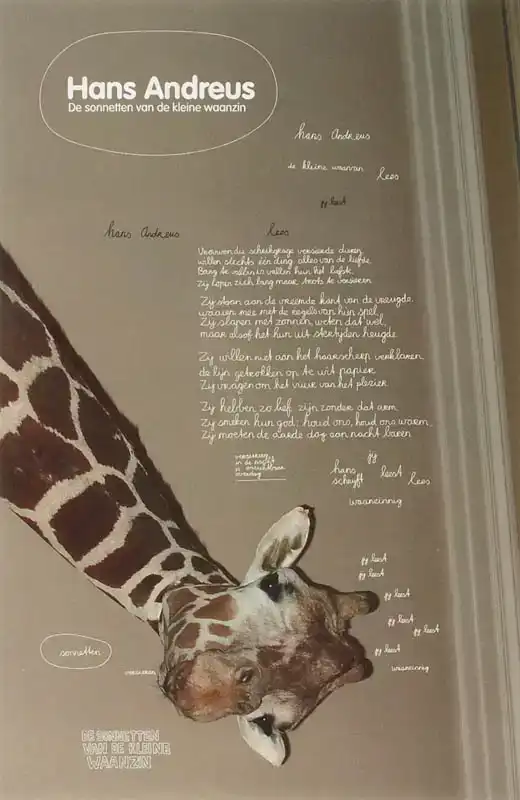 Hans Andreus
De sonnetten van de kleine waanzin
hans Andreus
de kleine waanzin
lees
jij leest
hans Andreus lees
willen slechts één ding: alles van de liefde.
Bang te vallen in vallen hun het liefste.
Zij lopen zich lang maar trots te
Zij staan aan de vreemde kant van de vreugde.
waaien mee met de regels van hun spel.
Zij slapen met zonnen, weten dat wel,
maar alsof het hun uit heugde.
Zij willen niet aan het haarscherp verklaren,
de lijn getrokken op te wit papier.
Zij vragen om het vuur van het plezier.
Zij hebben zo lief, zijn zonder dat arm.
Zij smeken hun god: houd ons, houd ons warm.
Zij moeten de aarde dag aan nacht baren
in de nacht
jij
hans leest
schrijft lees
waanzinnig
jij leest
jij leest
jij leest
jij leest
jij leest
jij leest
waanzinnig
sonnetten
DE SONNETTEN
VAN DE KLEINE
WAANZIN